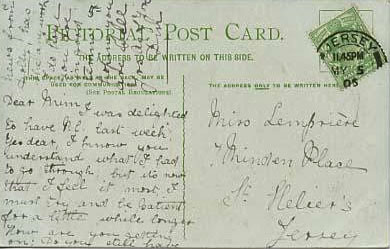 PICTORIAL POST CARD.
THE ADDRESS TO BE WRITTEN ON THIS SIDE.
MAY BE
USED FOR COMMUNICATION
(SEE POSTAL REGULATIONS)
THE ADDRESS ONLY TO BE WRITTEN HERE.
JERSEY
11.45PM
MY 5
05
Dear Mum
I was delighted
to have P.C. last week,
Yes dear, I know you
understand what I had
to go through, but its now
that I feel it most. I
must try and be patient
for a little while longer
How are you getting
on? Do you still have
Miss Lemprière
7 Minden Place
St Helier's
Jersey
news from